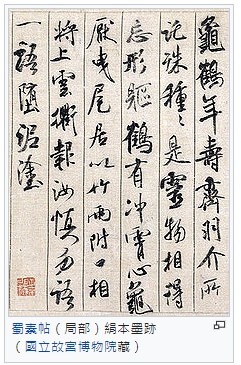 龜鶴年壽齊羽介所
託殊種〻是靈物相得
忘形軀鶴有沖霄心龜
厭曳尾居以竹兩附口相
將上雲衢報汝慎勿語
一語墮泥塗
蜀素帖（局部）絹本墨跡
（國立故宮博物院藏）